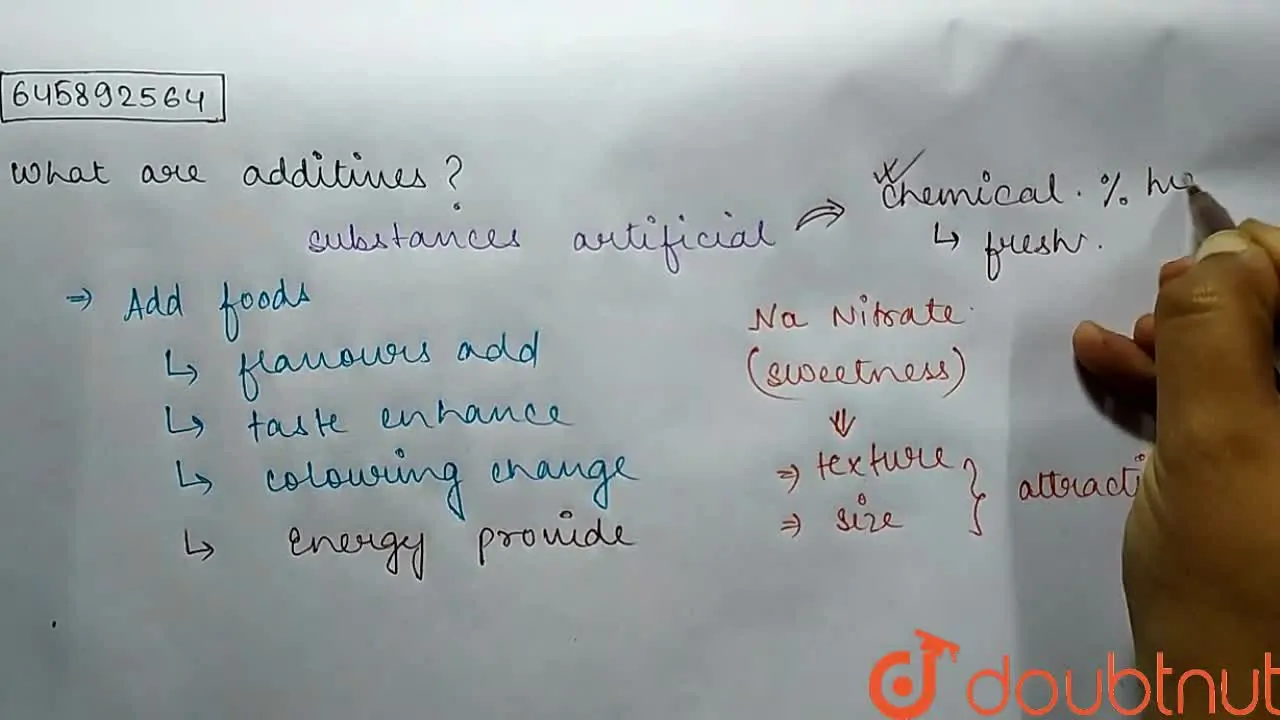 645892564
What are additives?
substances artificial ⇒ chemical. %
↳ fresh.
⇒ Add foods
↳ flavours add
↳ taste enhance
↳ colouring change
↳ energy provide
Na Nitrate.
(sweetness)
⇓
⇒ texture
⇒ size
} attracti
doubtnut